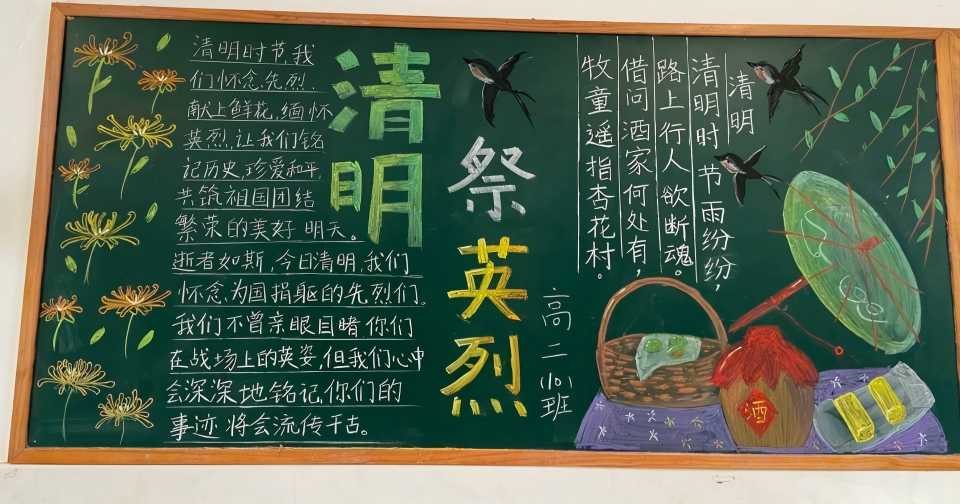 清明时节,我
们怀念先烈.
献上鲜花,缅怀
英烈,让我们铭
记历史,珍爱和平,
共筑祖国团结
繁荣的美好明天。
逝者如斯,今日清明,我们
怀念,为国捐躯的先烈们。
我们不曾亲眼目睹你们
在战场上的英姿,但我们心中
会深深地铭记,你们的
事迹将会流传千古。
清明
祭英烈
高二(10)班
清明
清明时节雨纷纷,
路上行人欲断魂。
借问酒家何处有,
牧童遥指杏花村。
酒